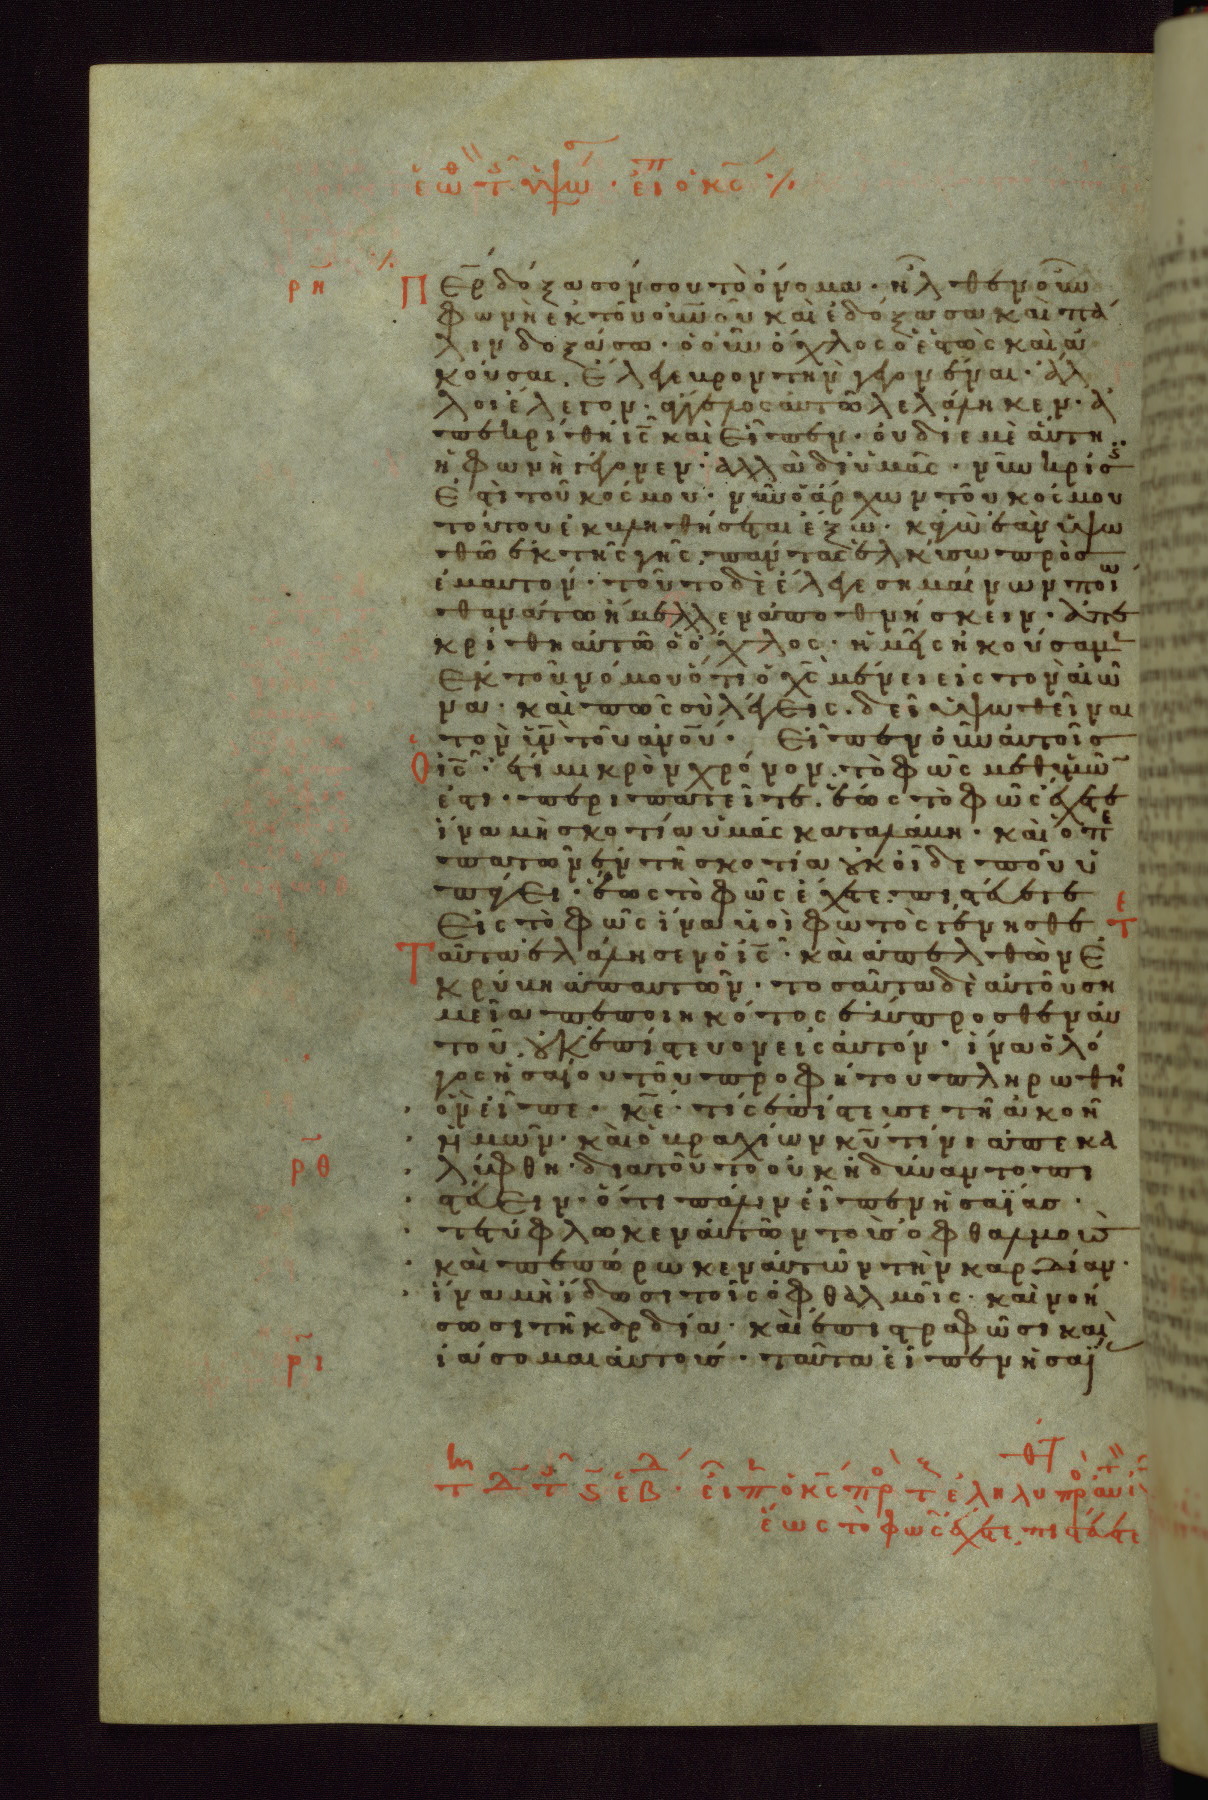 ἑωθ τ ὑψω · εἶπ ὁ κς ·/.
ρη
Περ δόξασόν σου τὸ ὄνομα · ἦλθεν οὖν
φωνὴ ἐκ τοῦ οὐνοῦ· καὶ ἐδόξασα καὶ πά
λιν δοξάσω · ὁ οὖν ὄχλος ὁ ἑστὼς καὶ ἀ
κούσας. ἔλεγε βροντὴν γεγονέναι · ἄλ
λοι ἔλεγον · ἄγγελος αὐτῶ λελάληκεν · ἀ
πεκρίθη ἰς καὶ εἶπεν · οὐ δι ἐμὲ αὕτη
ἡ φωνὴ γέγονεν · ἀλλὰ δι ὑμᾶς · νῦν κρίσις
ἐστὶ τοῦ κόσμου · νῦν ὁ ἄρχων τοῦ κόσμου
τούτου ἐκβληθήσεται ἔξω · κἀγὼ ἐὰν ὑψω
θῶ ἐκ τῆς γῆς, πάντας ἑλκύσω πρὸς
ἐμαυτόν · τοῦτο δὲ ἔλεγε σημαίνων ποίω
θανάτω ἤμελλεν ἀποθνήσκειν · ἀπε
κρίθη αὐτῶ ὁ ὄχλος · ἡμεῖς ἠκούσαμεν
ἐκ τοῦ νόμου ὅτι ὁ χς μένει εἰς τὸν αἰῶ
να · καὶ πῶς σὺ λέγεις. δεῖ ὑψωθῆναι
τὸν υν τοῦ ανου · εἶπεν οὖν αὐτοῖς
ὁ ις · ἔτι μικρὸν χρόνον, τὸ φῶς μεθ ὑμῶν
ἐστι · περιπατεῖτε. ἕως τὸ φῶς ἔχετε
ἵνα μὴ σκοτία ὑμᾶς καταλάβη · καὶ ὁ πε
πατῶν ἐν τῆ σκοτία οὐκ οἶδε ποῦ ὑ
πάγει · ἕως τὸ φῶς ἔχετε. πιστεύετε
εἰς τὸ φῶς ἵνα υἱοὶ φωτὸς γένησθε τε
Ταῦτα ἐλάλησεν ὁ ις · καὶ ἀπελθὼν ἐ
κρύβη ἀπ αὐτῶν · τοσαῦτα δὲ αὐτοῦ ση
μεῖα πεποιηκότος ἔμπροσθεν αὐ
τοῦ, οὐκ ἐπίστευον εἰς αὐτόν · ἵνα ὁ λό
γος ἠσαΐου τοῦ προφήτου πληρωθῆ
ὃν εἶπε · κε · τίς ἐπίστευσε τῆ ἀκοῆ
ἡμῶν · καὶ ὁ βραχίων κυ τίνι ἀπεκα
ρθ
λύφθη · διατοῦτο οὐκ ἠδύναντο πι
στεύειν · ὅτι πάλιν εἶπεν ἠσαΐας ·
τετύφλωκεν αὐτῶν τοὺς ὀφθαλμοὺς
καὶ πεπώρωκεν αὐτῶν τὴν καρδίαν ·
ἵνα μὴ ἴδωσι τοῖς ὀφθαλμοῖς · καὶ νοή
σωσι τῆ καρδία · καὶ ἐπιστραφῶσι καὶ
ρι
ἰάσομαι αὐτούς · ταῦτα εἶπεν ἠσαΐ
τ Δ τ ς ἑβ · εἶπ ὁ κς πρ τ ἐληλυθτ πρ αυτ
ἕως τὸ φῶς ἔχετε, πιστεύετε